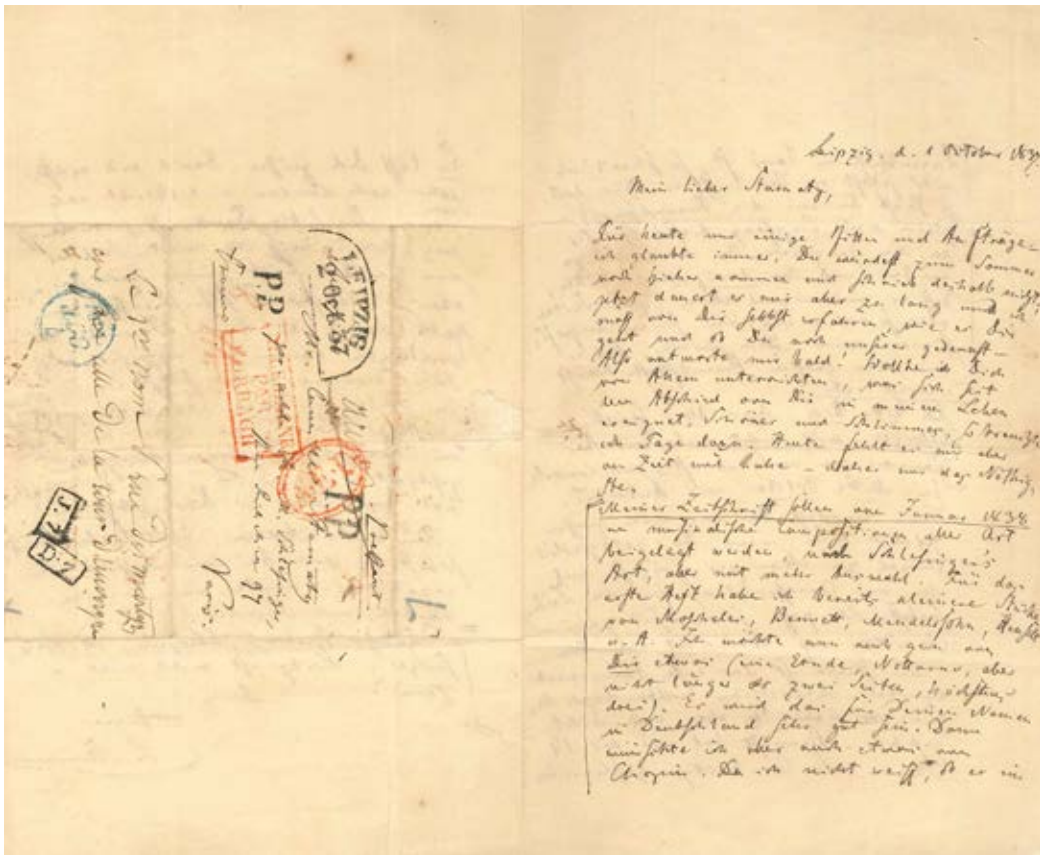 Leipzig. d. 1 October 1837
Mein lieber Stamaty,
Für heute nur einige Bitten und Aufträge –
ich glaubte immer, Du würdest zum Sommer
noch hieher kommen und schrieb deshalb nicht;
jetzt dauert es mir aber zu lang und ich
muß von Dir selbst erfahren, wie es Dir
geht und ob Du noch unserer gedenkst –
Also antworte mir bald! Wollte ich Dich
von Allem unterrichten, was sich seit
dem Abschied von Dir in meinem Leben
ereignet, Schönes und Schlimmes, so brauchte
ich Tage dazu. Heute fehlt es mir aber
an Zeit und Ruhe – daher nur das Nöthig
ste.
Meiner Zeitschrift sollen von Januar 1838
an musikalische Compositionen aller Art
beigelegt werden, nach Schlesinger's
Art, aber mit mehr Auswahl. Für das
erste Heft habe ich bereits kleinere Stücke
von Moscheles, Bennett, Mendelssohn, Henselt
u. A. Ich möchte nun auch gern von
Dir etwas (eine Etude, Notturno, aber
nicht länger als zwei Seiten, höchstens
drei). Es wird das für Deinen Namen
in Deutschland sehr gut sein. Dann
wünschte ich aber auch etwas von
Chopin. Da ich nicht weiß, ob er in
LEIPZIG
2 Oct. 37
P.P.
PAR
FORBACH
PD
Stamaty
M. Schlesinger,
Rue Richelieu 97
Paris.
J. 7
D. 7